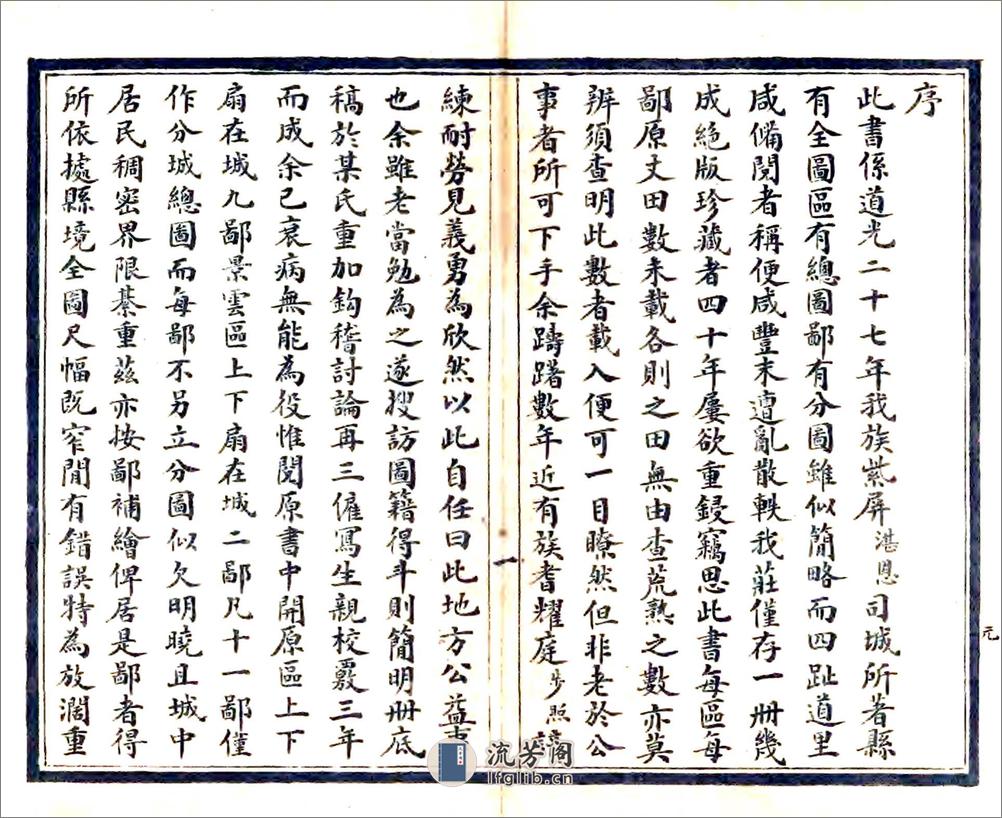 序
此書係道光二十七年我族紫屏湛恩司城所著縣
有全圖區有總圖鄙有分圖雖似簡略而四趾道里
咸備閱者稱便咸豐末遭亂散軼我莊僅存一冊幾
成絕版珍藏者四十年屢欲重鋟竊思此書每區每
鄙原丈田數未載各則之田無由查荒熟之數亦莫
辨須查明此數者載入便可一目瞭然但非老於公
事者所可下手余躊躇數年近有族耆耀庭步照
練耐勞見義勇為欣然以此自任曰此地方公益事
也余雖老當勉為之遂搜訪圖籍得斗則簡明冊底
稿於某氏重加鈎稽討論再三僱寫生親校覈三年
而成余已衰病無能為役惟閱原書中開原區上下
扇在城九鄙景雲區上下扇在城二鄙凡十一鄙僅
作分城總圖而每鄙不另立分圖似欠明曉且城中
居民稠密界限綦重茲亦按鄙補繪俾居是鄙者得
所依據縣境全圖尺幅既窄間有錯誤特為放濶重
一
元
流芳閣
lfglib.cn